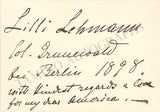 Lilli Lehmann
Col. Grunewald
bei Berlin 1898.
with kindest regards & love
for my dear America.